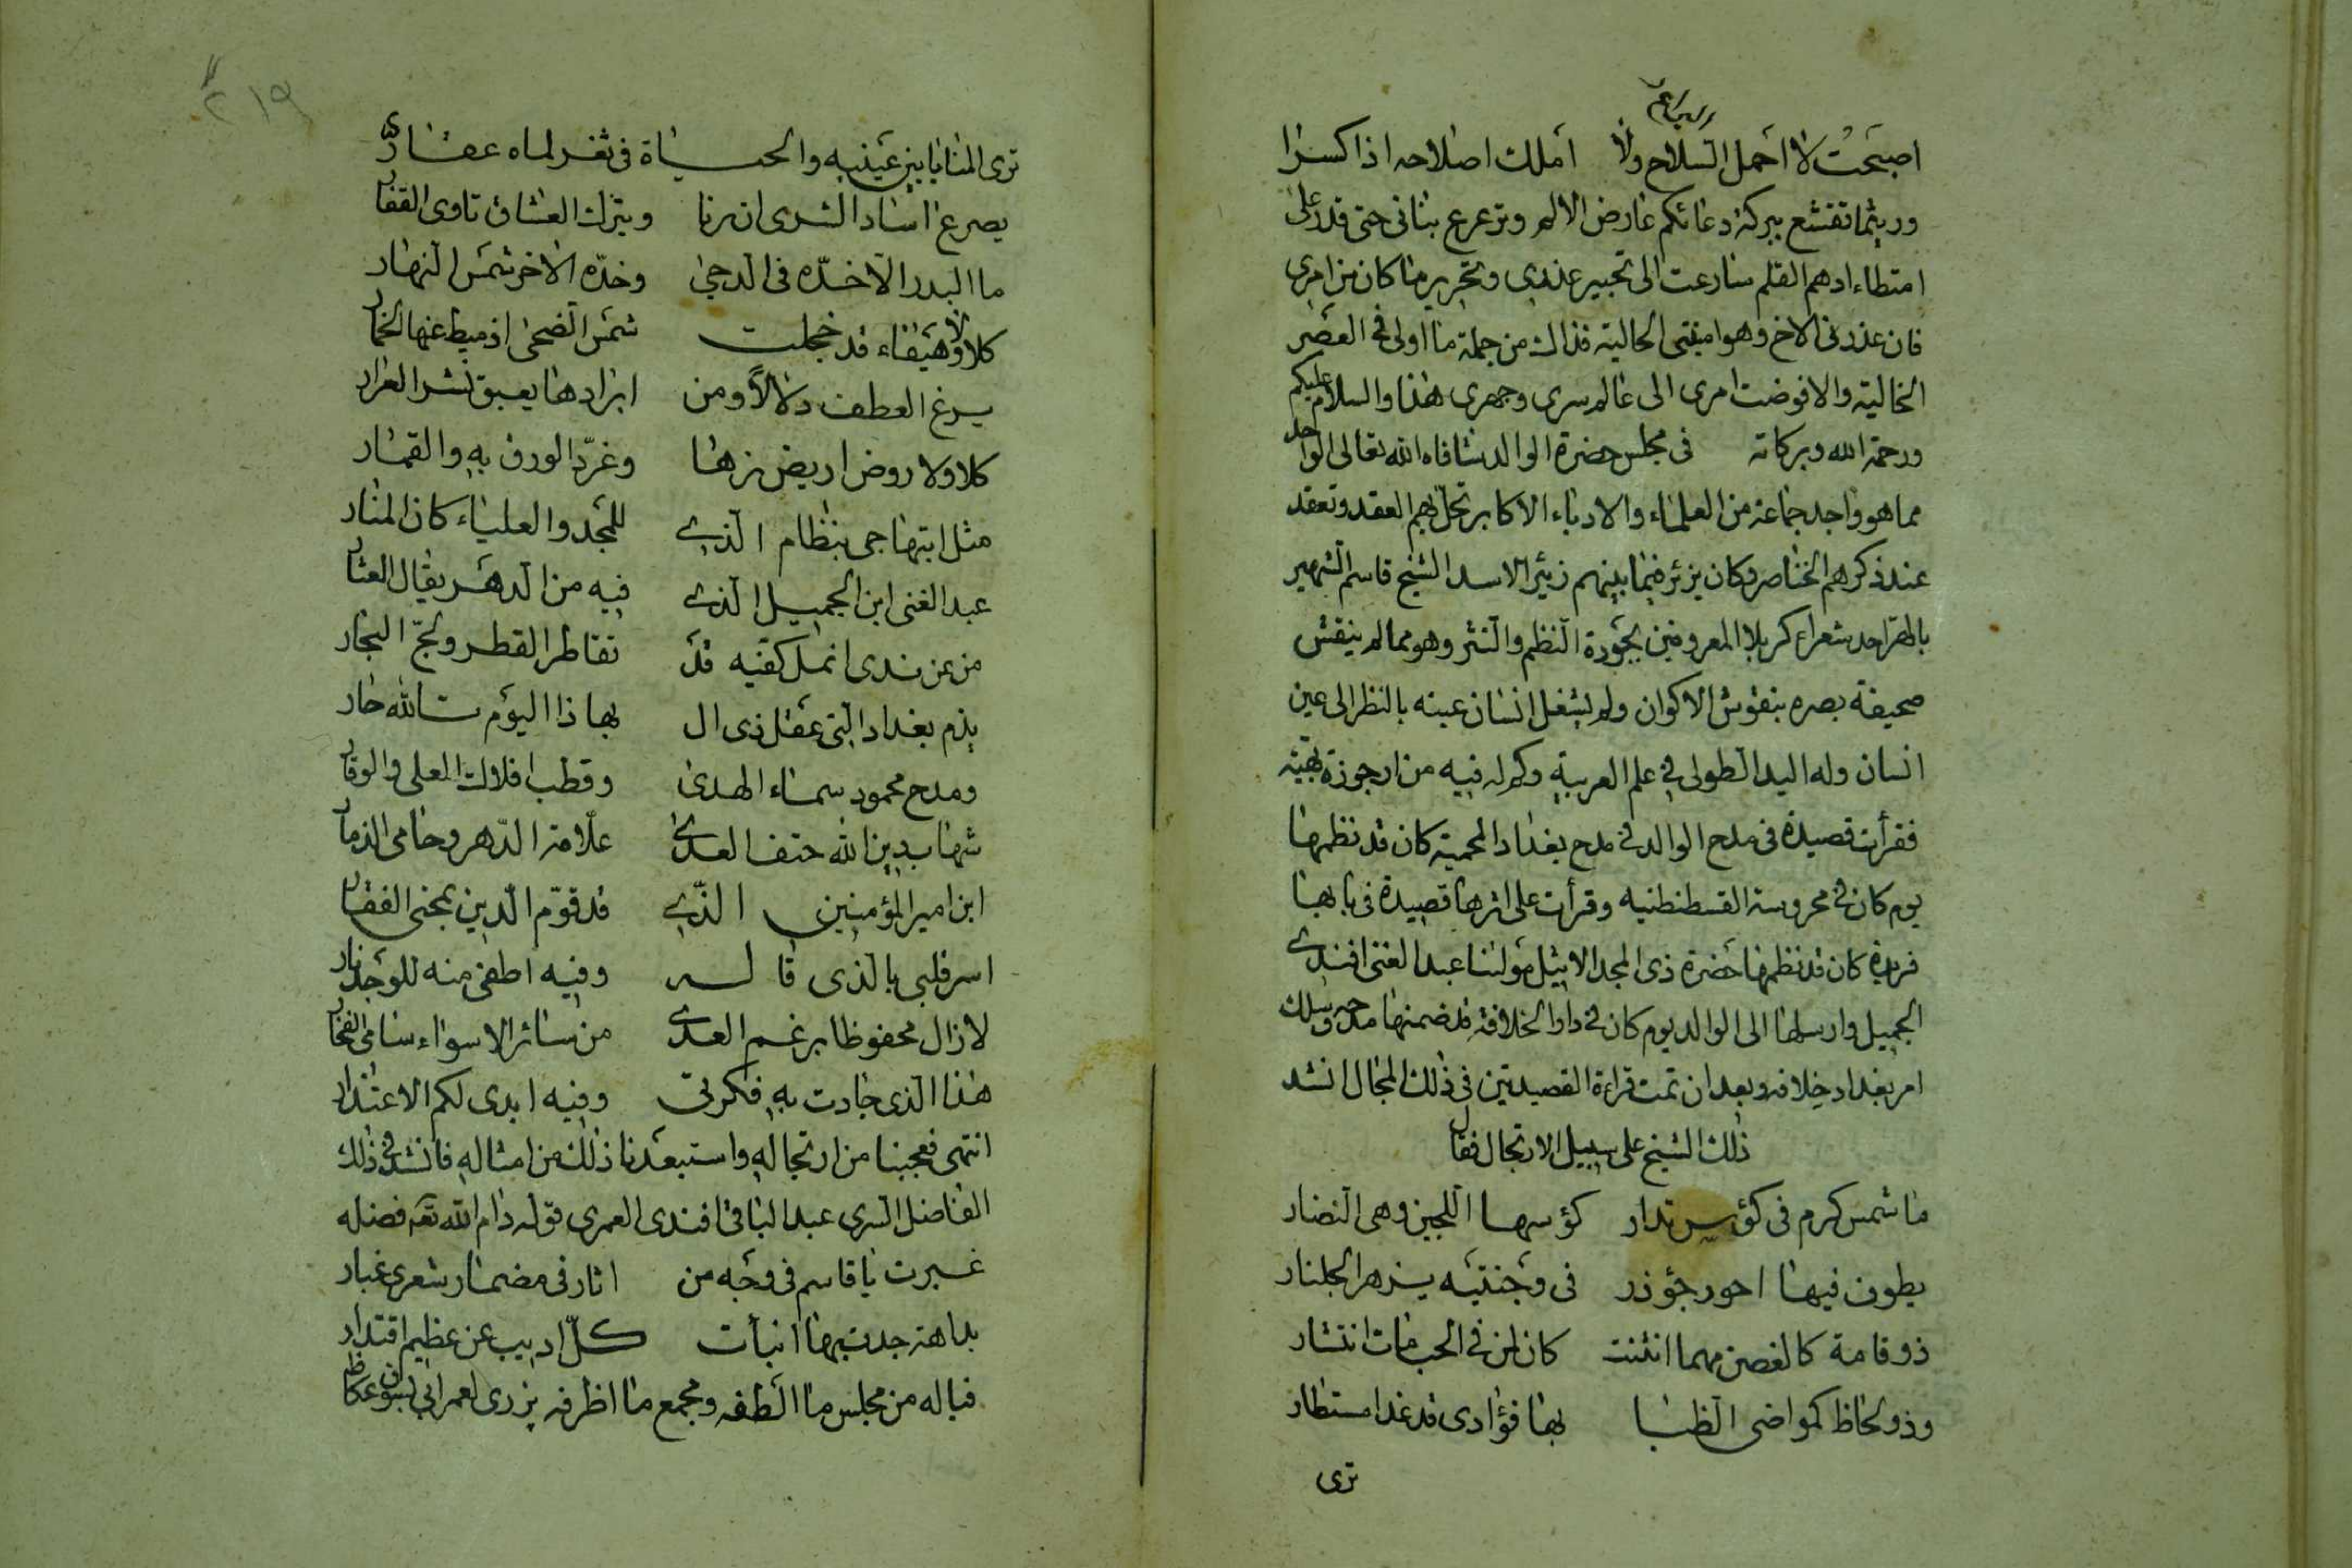 اصبحت لا احمل السلاح ولا املك اصلاحه اذا كسرا
وريثما تقشع ببركة دعائكم عارض الالم وترعرع بنانى حتى قدر على
امتطاء ادهم القلم سارعت الى تحبير عذرى وتحرير ما كان من امرى
فان عذرنى الاخ وهو امنيتى الحالية فذاك من جملة ما اولى فى العصر
الخالية والا فوضت امرى الى عالم سرى وجهرى هذا والسلام عليكم
ورحمة الله وبركاته فى مجلس حضرة الوالد شافاه الله تعالى الواحد
مما هو واجد جماعة من العلماء والادباء الاكابر تحل بهم العقد وتعقد
عند ذكرهم الخناصر وكان يزئر فيما بينهم زئير الاسد الشيخ قاسم الشهير
بالهر احد شعراء كربلا المعروفين بجودة النظم والنثر وهو مما لم ينقش
صحيفة بصره بنقوش الاكوان ولم يشغل انسان عينه بالنظر الى عين
انسان وله اليد الطولى فى علم العربية وكم له فيه من ارجوزة بهية
فقرأت قصيدة فى مدح الوالد فى مدح بغداد المحمية كان قد نظمها
يوم كان فى محروسة القسطنطنيه وقرأت على اثرها قصيدة فى بابها
فريدة كان قد نظمها حضرة ذى المجد الاثيل مولنا عبد الغنى افندى
الجميل وارسلها الى الوالد يوم كان فى دار الخلافة قد ضمنها مدحه وسلك
امر بغداد خلافه وبعد ان تمت قراءة القصيدتين فى ذلك المجال انشد
ذلك الشيخ على سبيل الارتجال فقال
ما شمس كرم فى كؤس تدار كؤسها اللجين وهى النضار
يطوف فيها احور جؤذر فى وجنتيه يزهر الجلنار
ذو قامة كالغصن مهما انثنت كان لمن فى الحب مات انتشار
وذو لحاظ كمواضى الظبا بها فؤادى قد غدا مستطار
ترى
٢١٩
ترى المنايا بين عينيه والحياة فى ثغر لماه عقار
يصرع اساد الشرى ان رنا ويترك العشاق تاوى القفار
ما البدر الا خده فى الدجى وخده الاخر شمس النهار
كلا ولا هيفاء قد خجلت شمس الضحى اذ ميط عنها الخمار
العطف دلالا ومن ابرادها يعبق نشر العرار
كلا ولا روض اريض زها وغرد الورق به والقمار
مثل ابتهاجى بنظام الذى للمجد والعلياء كان المنار
عبد الغنى ابن الجميل الذى فيه من الدهر يقال العثار
من عن ندى انمل كفيه قد تقاطر القطر ولج البحار
بذم بغداد التى عقل ذى ال بها ذا اليوم تالله حار
ومدح محمود سماء الهدى وقطب افلاك العلى والوقار
شهاب دين الله حتف العدى علامة الدهر وحامى الذمار
ابن امير المؤمنين الذى قد قوم الدين بمحنى الفقار
اسر قلبى بالذى قاله وفيه اطفى منه للوجد نار
لازال محفوظا برغم العدى من سائر الاسواء سامى الفخار
هذا الذى جادت به فكرتى وفيه ابدى لكم الاعتذار
انتهى فعجبنا من ارتجاله واستبعدنا ذلك من امثاله فانشد فى ذلك
الفاضل السرى عبد الباقى افندى العمرى قوله دام الله تعه فضله
غبرت يا قاسم فى وجه من اثار فى مضمار شعرى غبار
بداهة جدت بها انبأت كل اديب عن عظيم اقتدار
فياله من مجلس ما الطفه ومجمع ما اظرفه يزرى لعمر ابى بسوق عكاظ